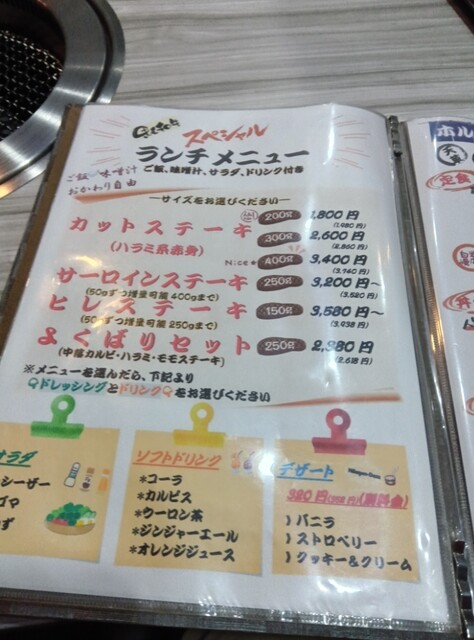 スペシャル
ランチメニュー
ご飯、味噌汁、サラダ、ドリンク付き
ご飯 味噌汁
おかわり自由
―サイズをお選びください―
カットステーキ
(ハラミ系赤身)
200g 1,800円
(1,980円)
300g 2,600円
(2,860円)
Nice 400g 3,400円
(3,740円)
サーロインステーキ 250g 3,200円~
(50gずつ増量可能 400gまで) (3,520円)
ヒレステーキ 150g 3,580円~
(50gずつ増量可能 250gまで) (3,938円)
よくばりセット 250g 2,380円
(中落カルビ・ハラミ・モモステーキ) (2,618円)
※メニューを選んだら、下記より
ドレッシングとドリンクをお選びください
サラダ
シーザー
ゴマ
ソフトドリンク
*コーラ
*カルピス
*ウーロン茶
*ジンジャーエール
*オレンジジュース
デザート
320円(352円)(別料金)
)バニラ
)ストロベリー
)クッキー&クリーム
ホル
定食